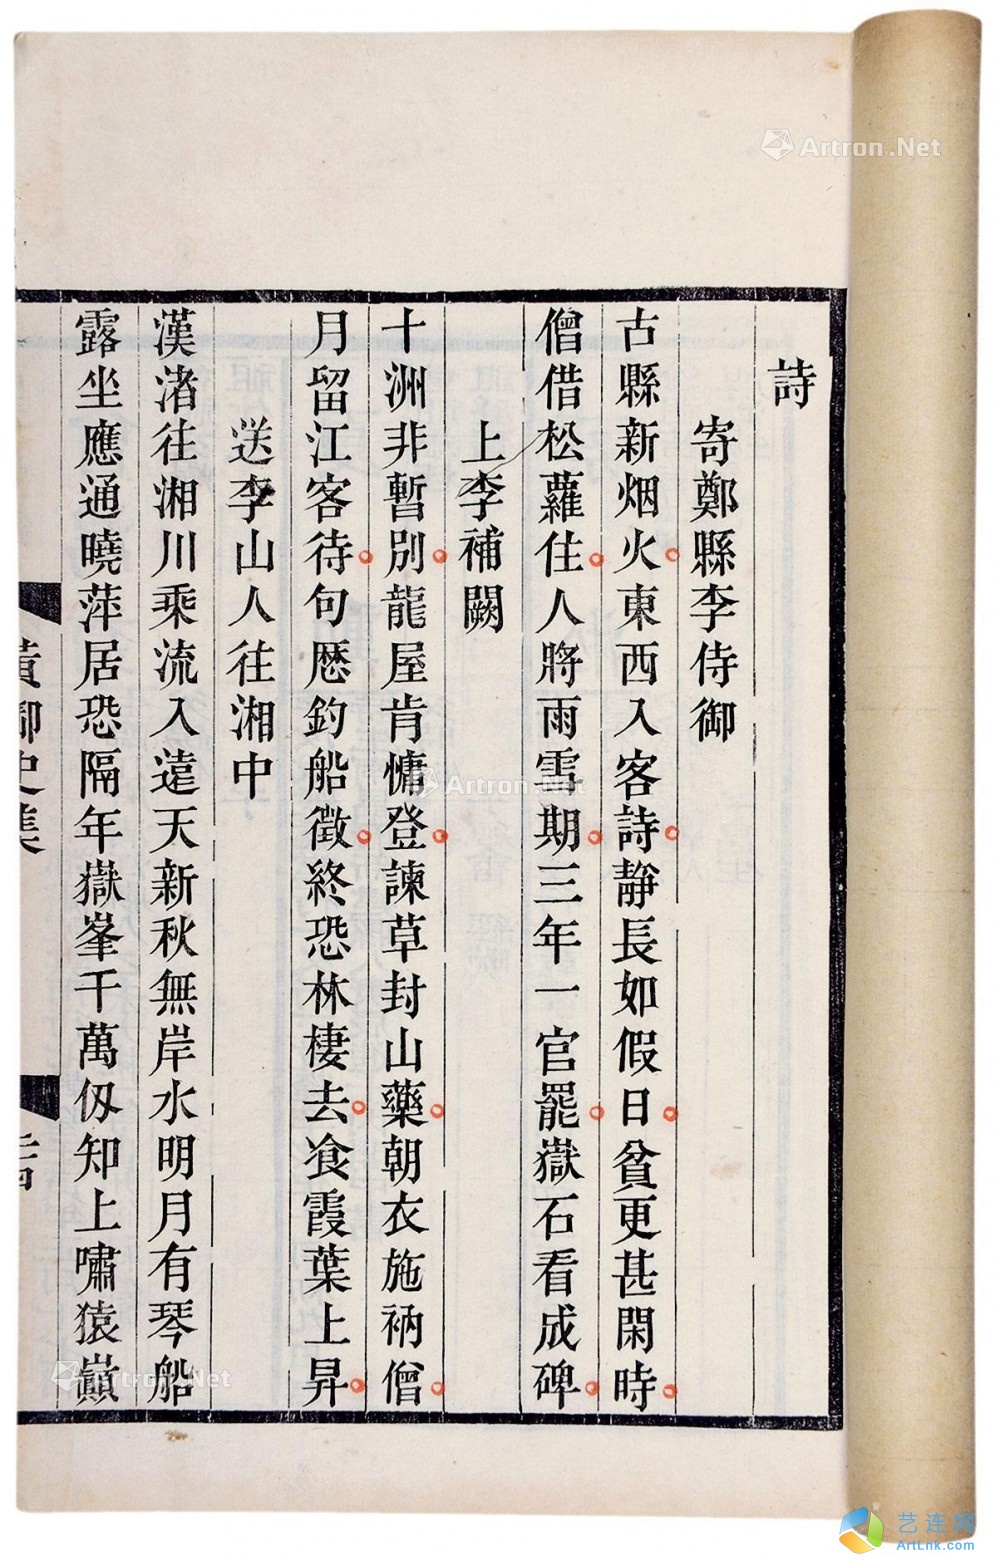 詩
寄鄭縣李侍御
古縣新烟火東西入客詩靜長如假日貧更甚閑時
僧借松蘿住人將雨雪期三年一官罷嶽石看成碑
上李補闕
十洲非暫別龍屋肯慵登諫草封山藥朝衣施衲僧
月留江客待句歷釣船徵終恐林棲去飡霞葉上昇
送李山人往湘中
漢渚往湘川乘流入遠天新秋無岸水明月有琴船
露坐應通曉萍居恐隔年嶽峯千萬仞知上嘯猿巔
黃御史集
二十四
Artron.Net
Artron.Net
Artron.Net
艺连网
ArtLnk.com